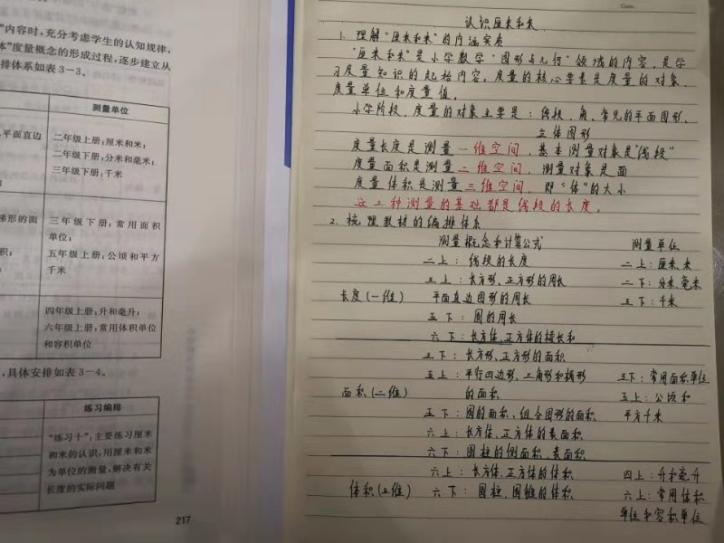 "内容时,充分考虑学生的认知规律,
体"度量概念的形成过程,逐步建立从
排体系如表3-3。
测量单位
平面直边
二年级上册:厘米和米;
二年级下册:分米和毫米;
三年级下册:千米
梯形的面
积;
三年级下册:常用面积
单位;
五年级上册:公顷和平方
千米
四年级上册:升和毫升;
六年级上册:常用体积单位
和容积单位
,具体安排如表3-4。
练习编排
"练习十",主要练习厘米
和米的认识,用厘米和米
为单位的测量,解决有关
长度的实际问题
217
Date.
认识厘米和米
1. 理解"厘米和米"的内涵实质
"厘米和米"是小学数学"图形与几何"领域的内容,是学
习度量知识的起始内容。度量的核心要素是度量的对象、
度量单位和度量值。
小学阶段,度量的对象主要是:线段、角、常见的平面图形、
立体图形
度量长度是测量一维空间,基本测量对象是"线段"
度量面积是测量二维空间,测量对象是面
度量体积是测量三维空间,即"体"的大小
这三种测量的基础都是线段的长度。
2. 梳理教材的编排体系
测量概念和计算公式 测量单位
二上:线段的长度 二上:厘米、米
三上:长方形、正方形的周长 二下:分米、毫米
长度(一维) 平面直边图形的周长 三下:千米
五下:圆的周长
六下:长方体、正方体的棱长和
三下:长方形、正方形的面积
五上:平行四边形、三角形和梯形 三下:常用面积单位
面积(二维) 的面积 五上:公顷和
五下:圆的面积、组合图形的面积 平方千米
六上:长方体、正方体的表面积
六下:圆柱的侧面积、表面积
六上:长方体、正方体的体积 四上:升和毫升
体积(三维) 六下:圆柱、圆锥的体积 六上:常用体积
单位和容积单位